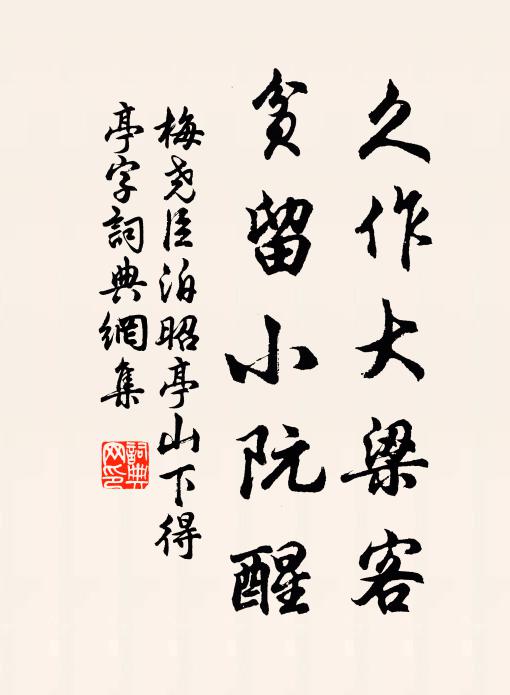 久作大梁客
貧留小阮醒
梅堯臣泊昭亭山下得
亭字詞典網集
詞典網印